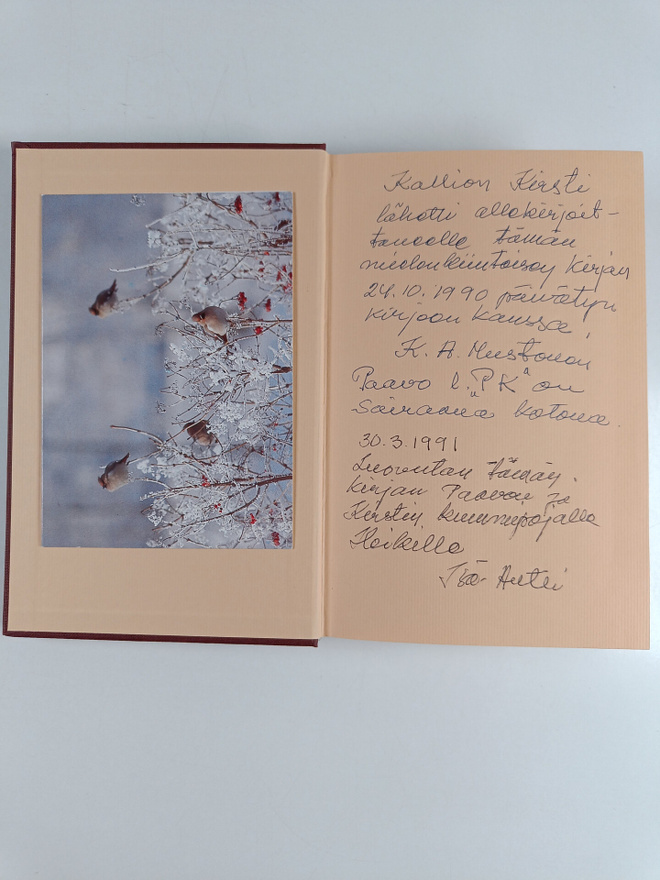 Kallion Kirsti
lähetti allekirjoit-
taneelle tämän
mielenkiintoisen kirjan
24.10.1990 päivätyn
kirjeen kanssa,
K. A. Mustonen
Paavo l. "PK" on
sairaana kotona.
30.3.1991
Luovutan tämän
kirjan Paavon ja
Kirstin kummipojalle
Heikille
Isä-Antti